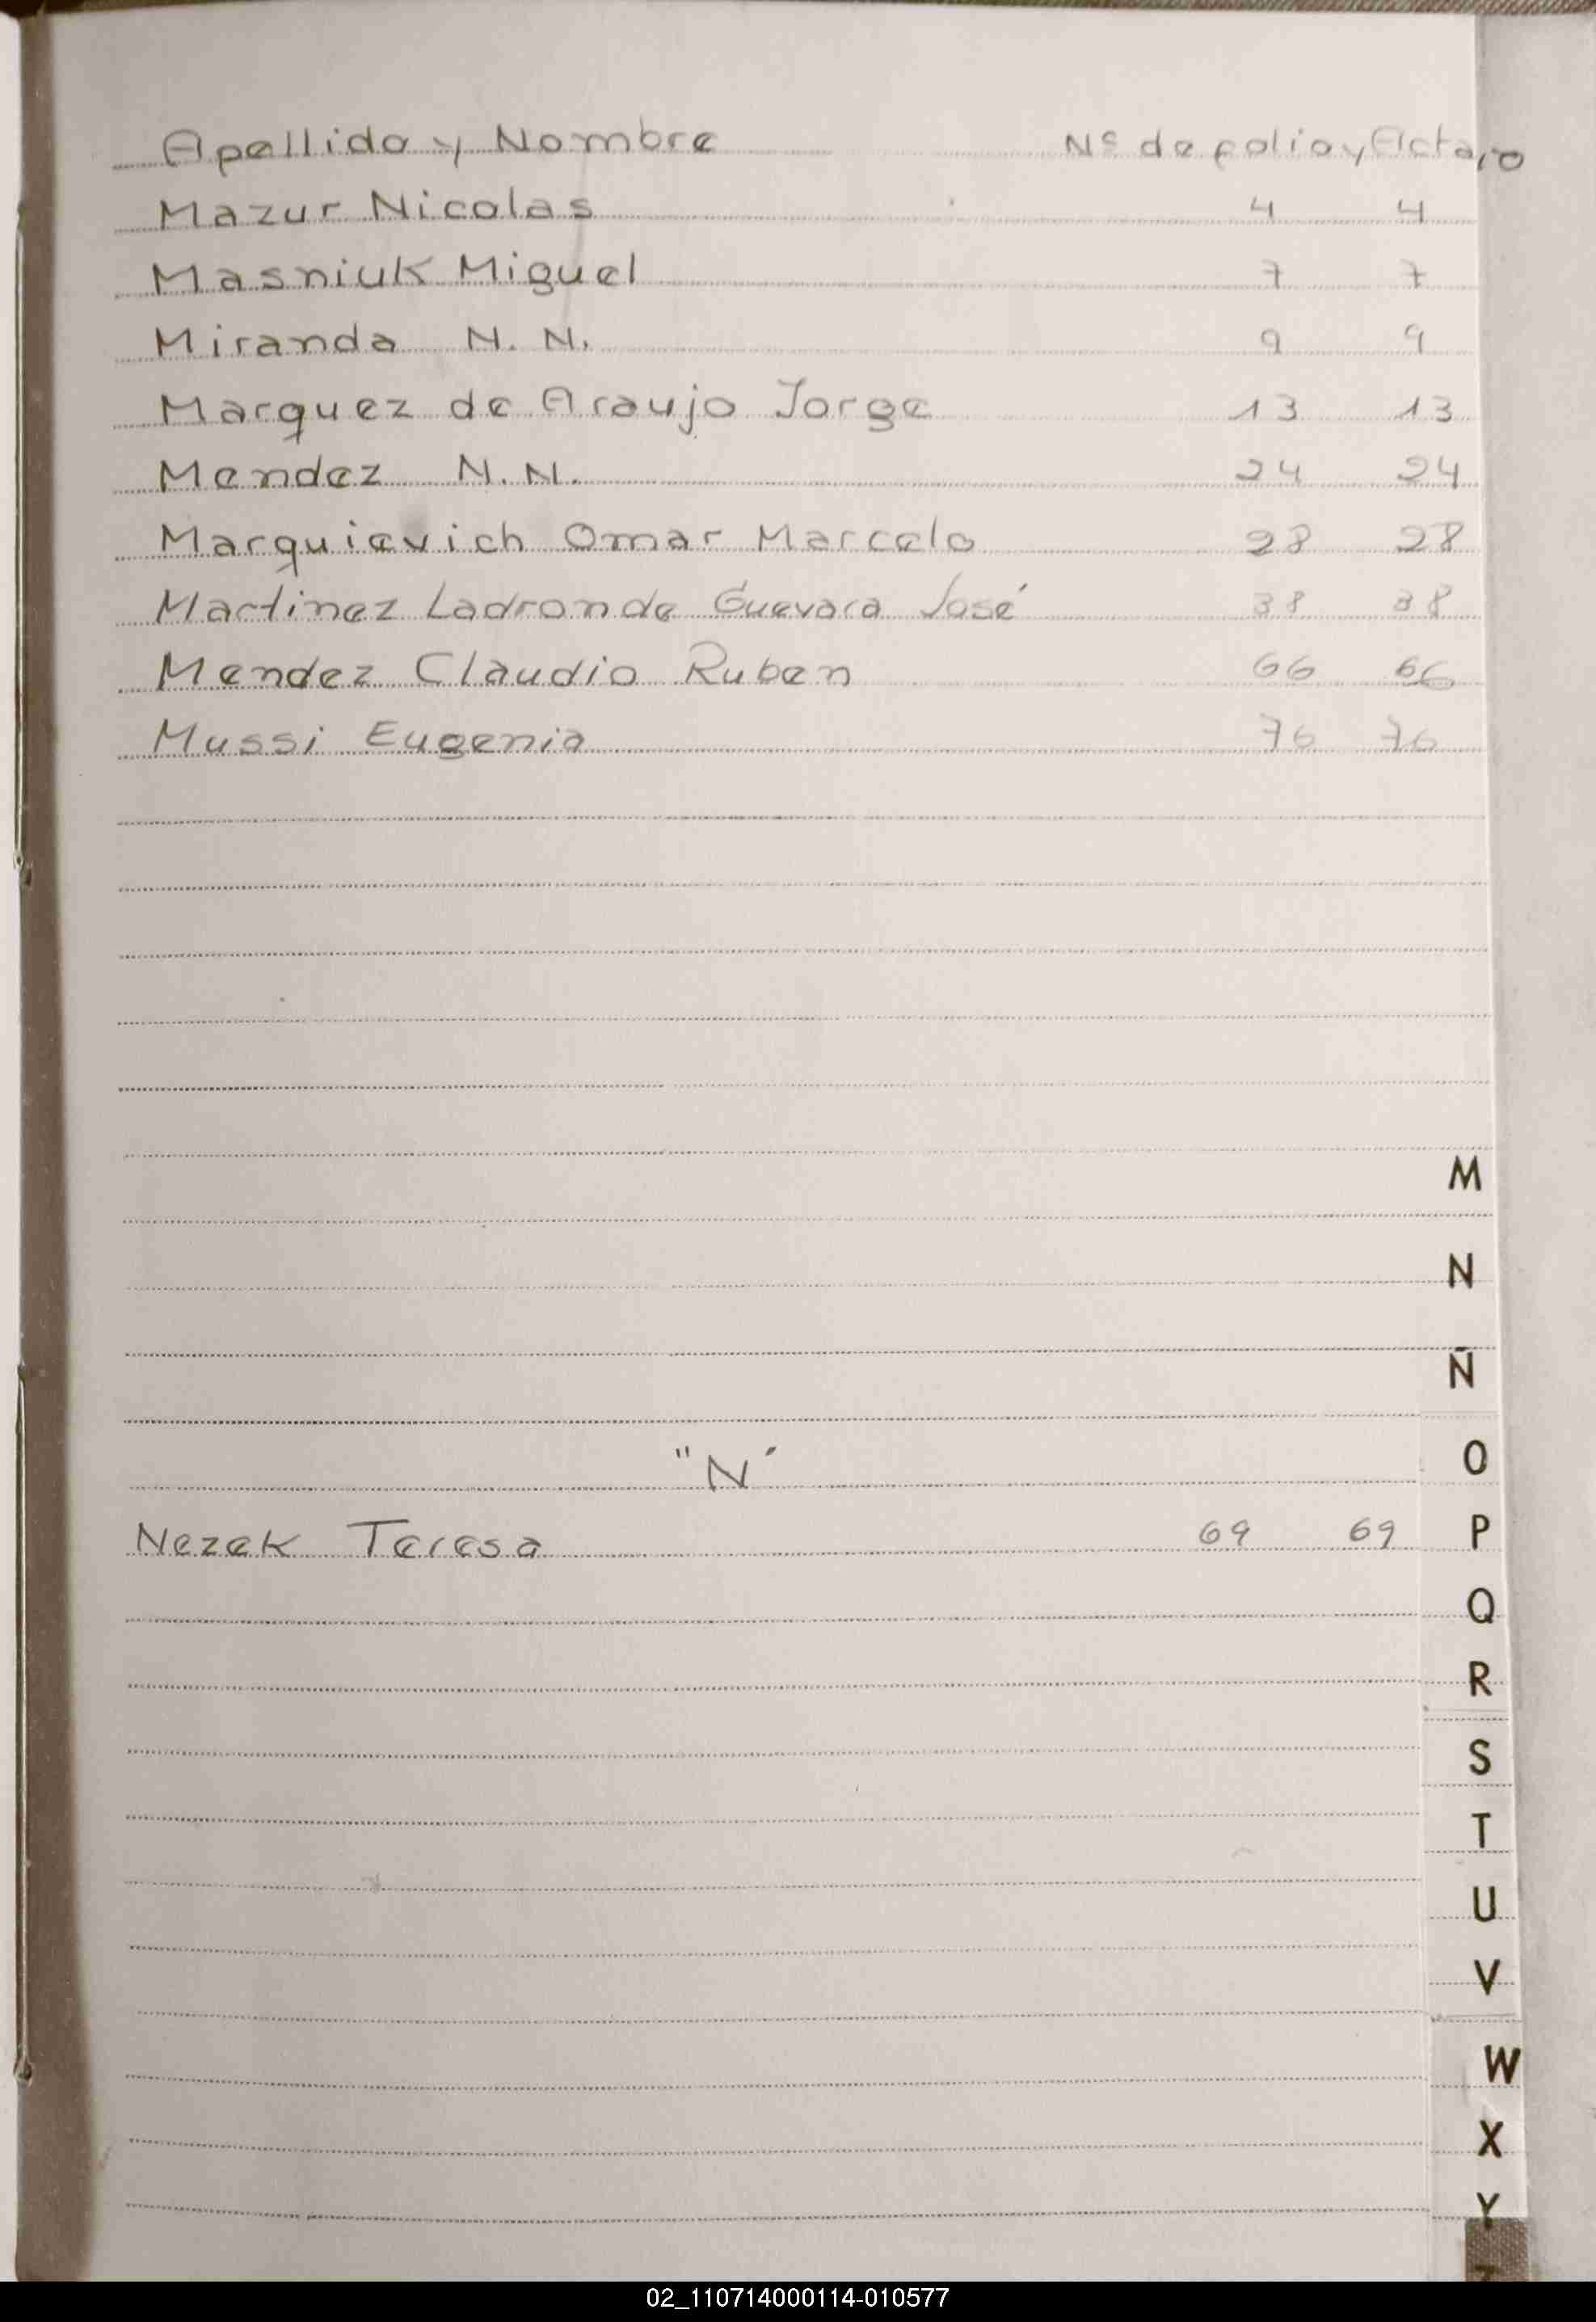 Apellido y Nombre Nº de folio y Acta
Mazur Nicolas 4 4
Masniuk Miguel 7 7
Miranda N. N. 9 9
Marquez de Araujo Jorge 13 13
Mendez N. N. 24 24
Marquievich Omar Marcelo 28 28
Martinez Ladron de Guevara José 38 38
Mendez Claudio Ruben 66 66
Mussi Eugenia 76 76
M
N
Ñ
O
"N"
Nezek Teresa 69 69 P
Q
R
S
T
U
V
W
X
Y
02_110714000114-010577